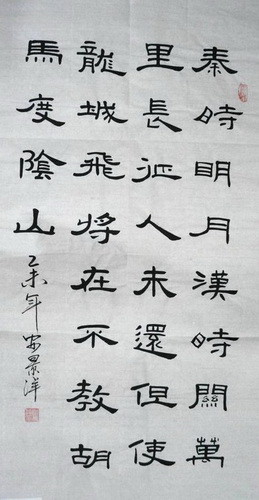 秦時明月漢時關萬
里長征人未還但使
龍城飛將在不教胡
馬度陰山
乙未年景洋